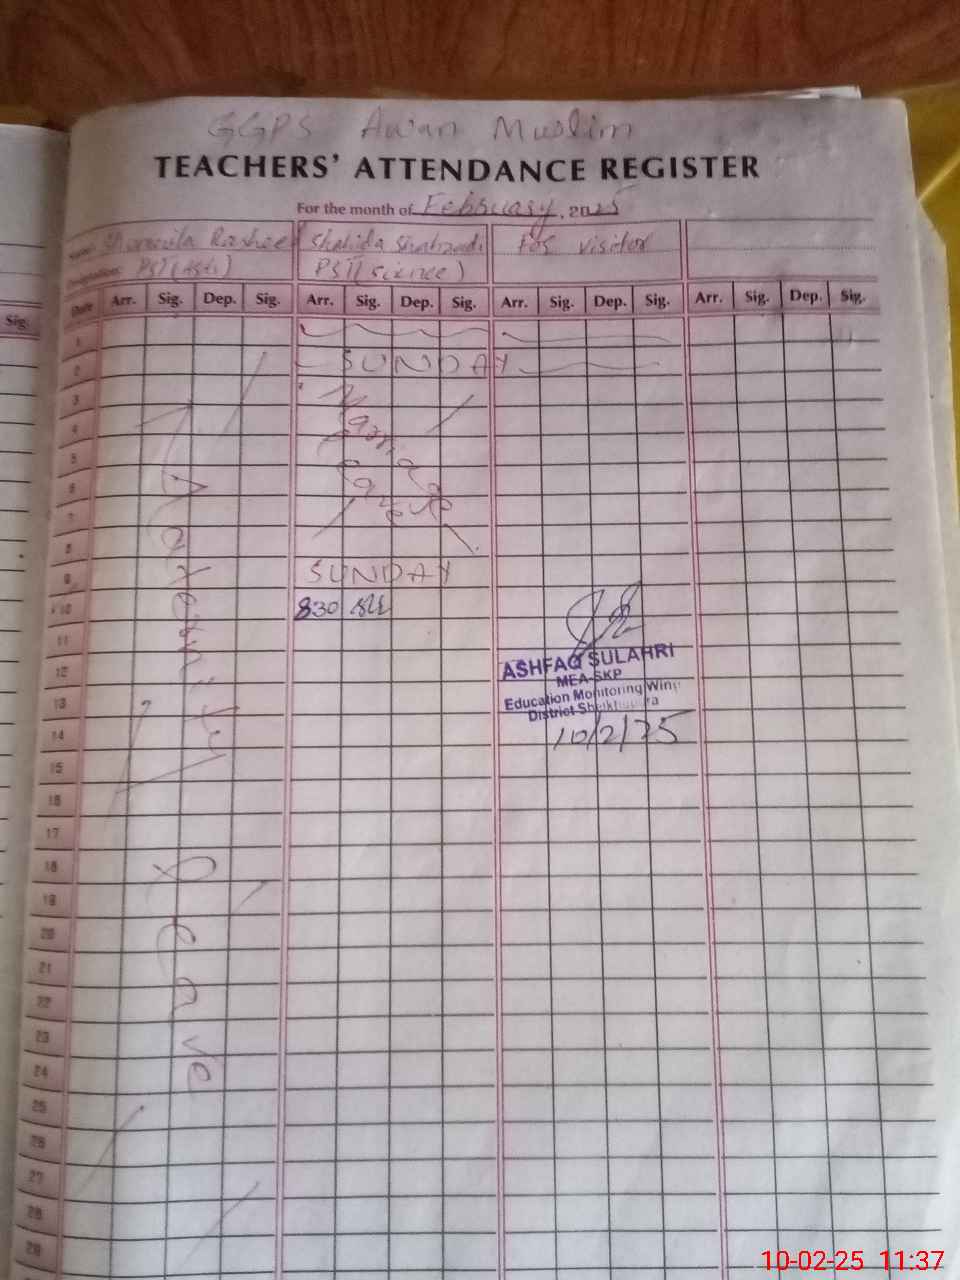 GGPS Awan Muslim
TEACHERS' ATTENDANCE REGISTER
For the month of February, 2025
Rasheed
Shahida
For visitor
PST
PST (science)
Date Arr. Sig. Dep. Sig. Arr. Sig. Dep. Sig. Arr. Sig. Dep. Sig. Arr. Sig. Dep. Sig.
Sig.
1
2 SUNDAY
3
4
5
6
7
8
9 SUNDAY
10 830
11
12
13
14
15
16
17
18
19
20
21
22
23
24
25
26
27
28
29
Marriage
Leave
Maternity Leave
ASHFAQ SULAHRI
MEA-SKP
Education Monitoring Wing
District Sheikhupura
10/2/25
10-02-25 11:37